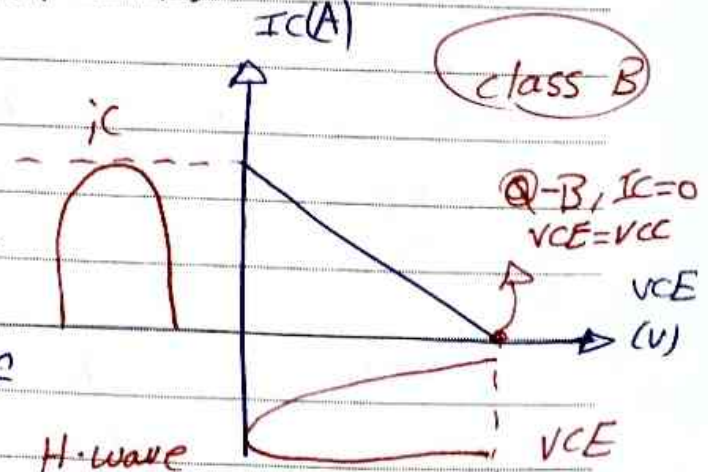 IC(A)
class B
iC
Q-B, IC=0
VCE=VCC
VCE
(V)
H.wave
VCE